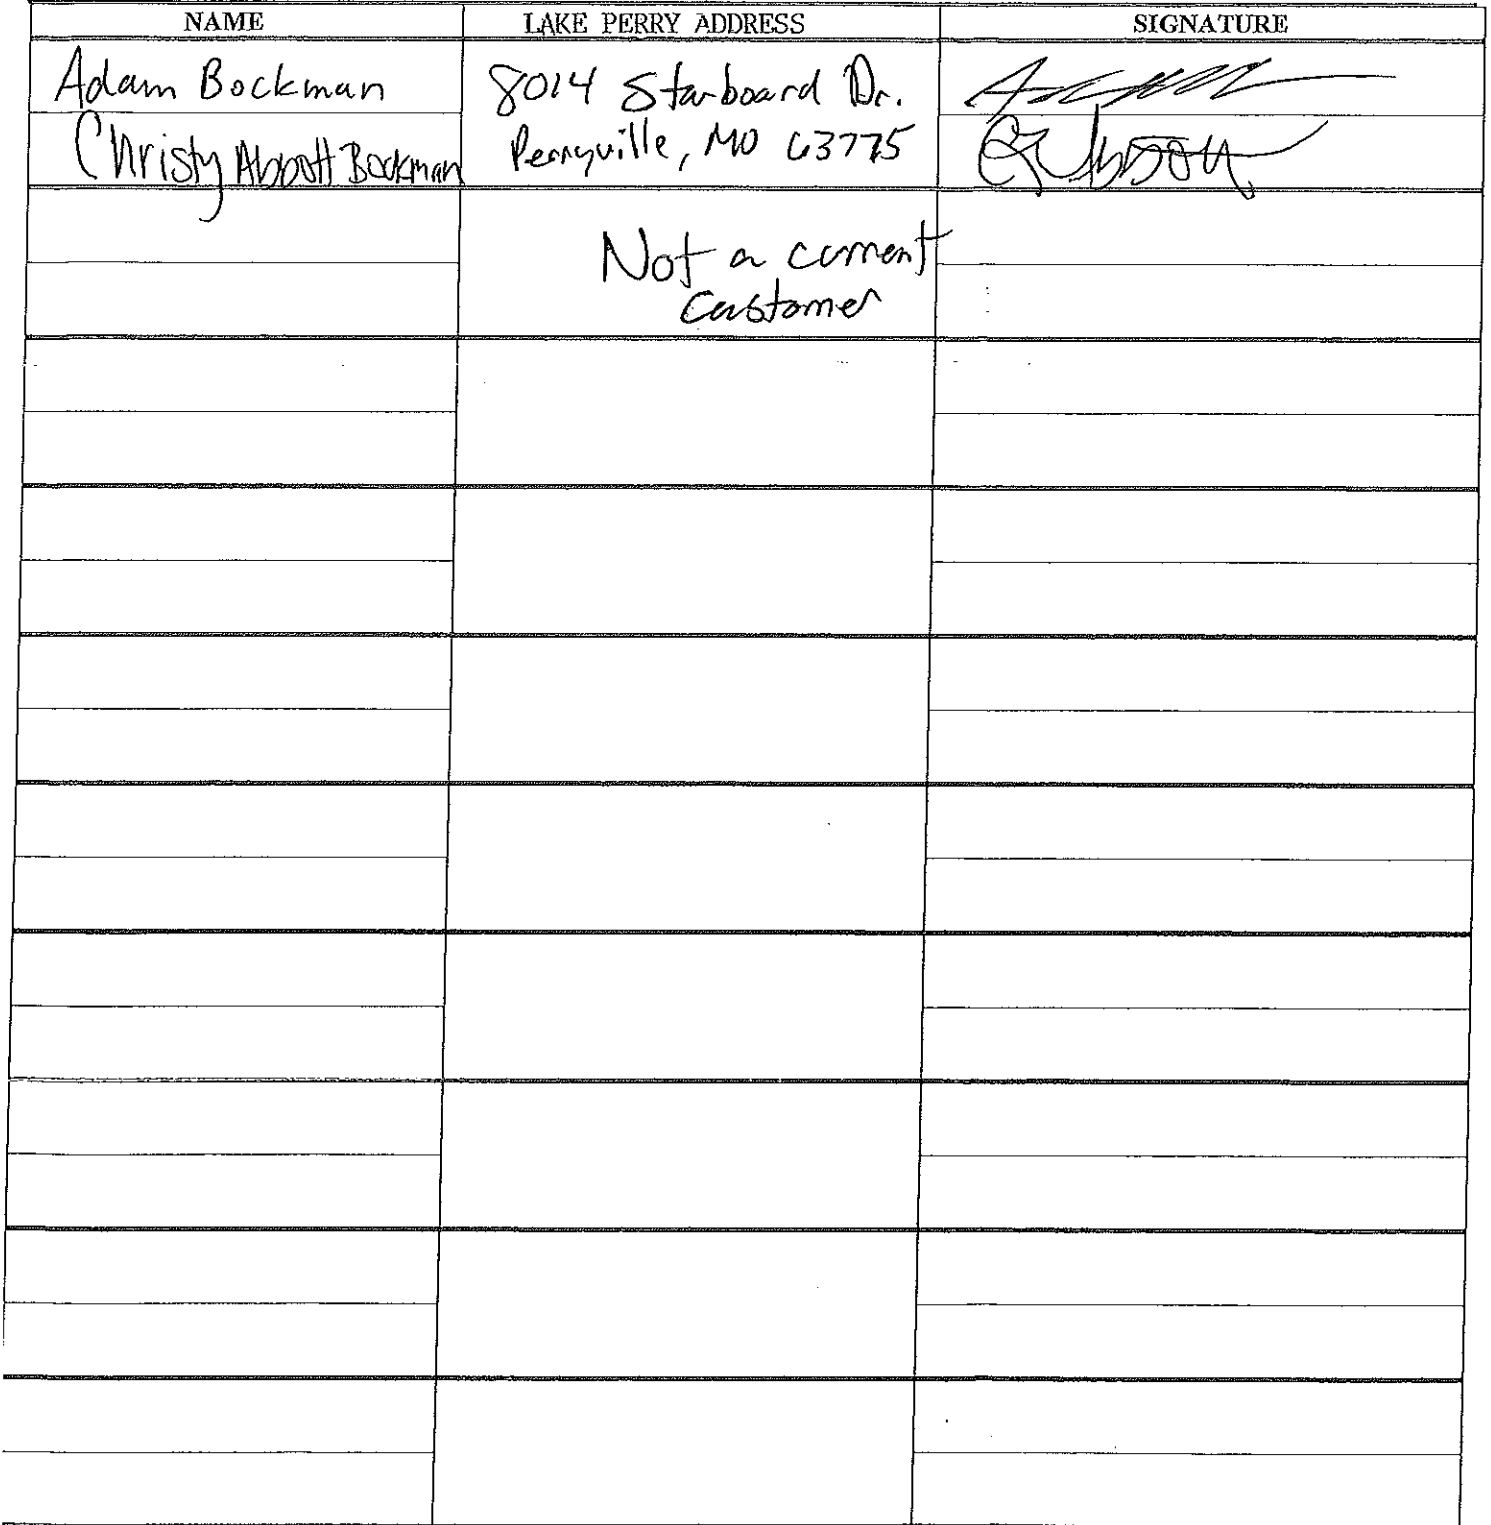 NAME LAKE PERRY ADDRESS SIGNATURE
Adam Bockman 8014 Starboard Dr.
Christy Abbott Bockman Perryville, MO 63775
Not a current
customer